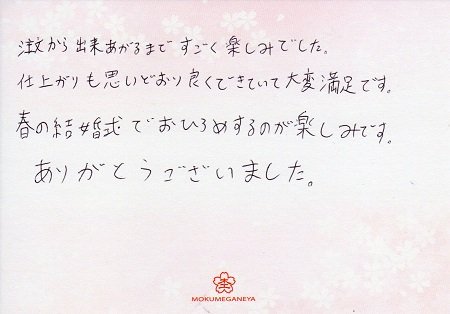 注文から出来あがるまですごく楽しみでした。
仕上がりも思いどおり良くできていて大変満足です。
春の結婚式でおひろめするのが楽しみです。
ありがとうございました。
MOKUMEGANEYA